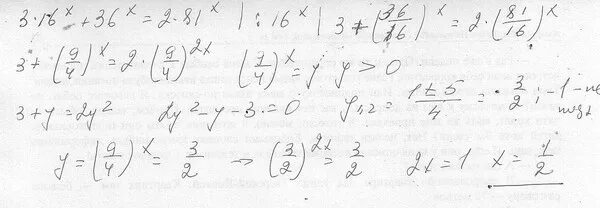 3·16^x + 36^x = 2·81^x | : 16^x | 3 + (36/16)^x = 2·(81/16)^x
3 + (9/4)^x = 2·(9/4)^2x (9/4)^x = y y > 0
3 + y = 2y² 2y² - y - 3 = 0 y₁,₂ = (1 ± 5)/4 = 3/2 ; -1 - не
y = (9/4)^x = 3/2 → (3/2)^2x = 3/2 2x = 1 x = 1/2